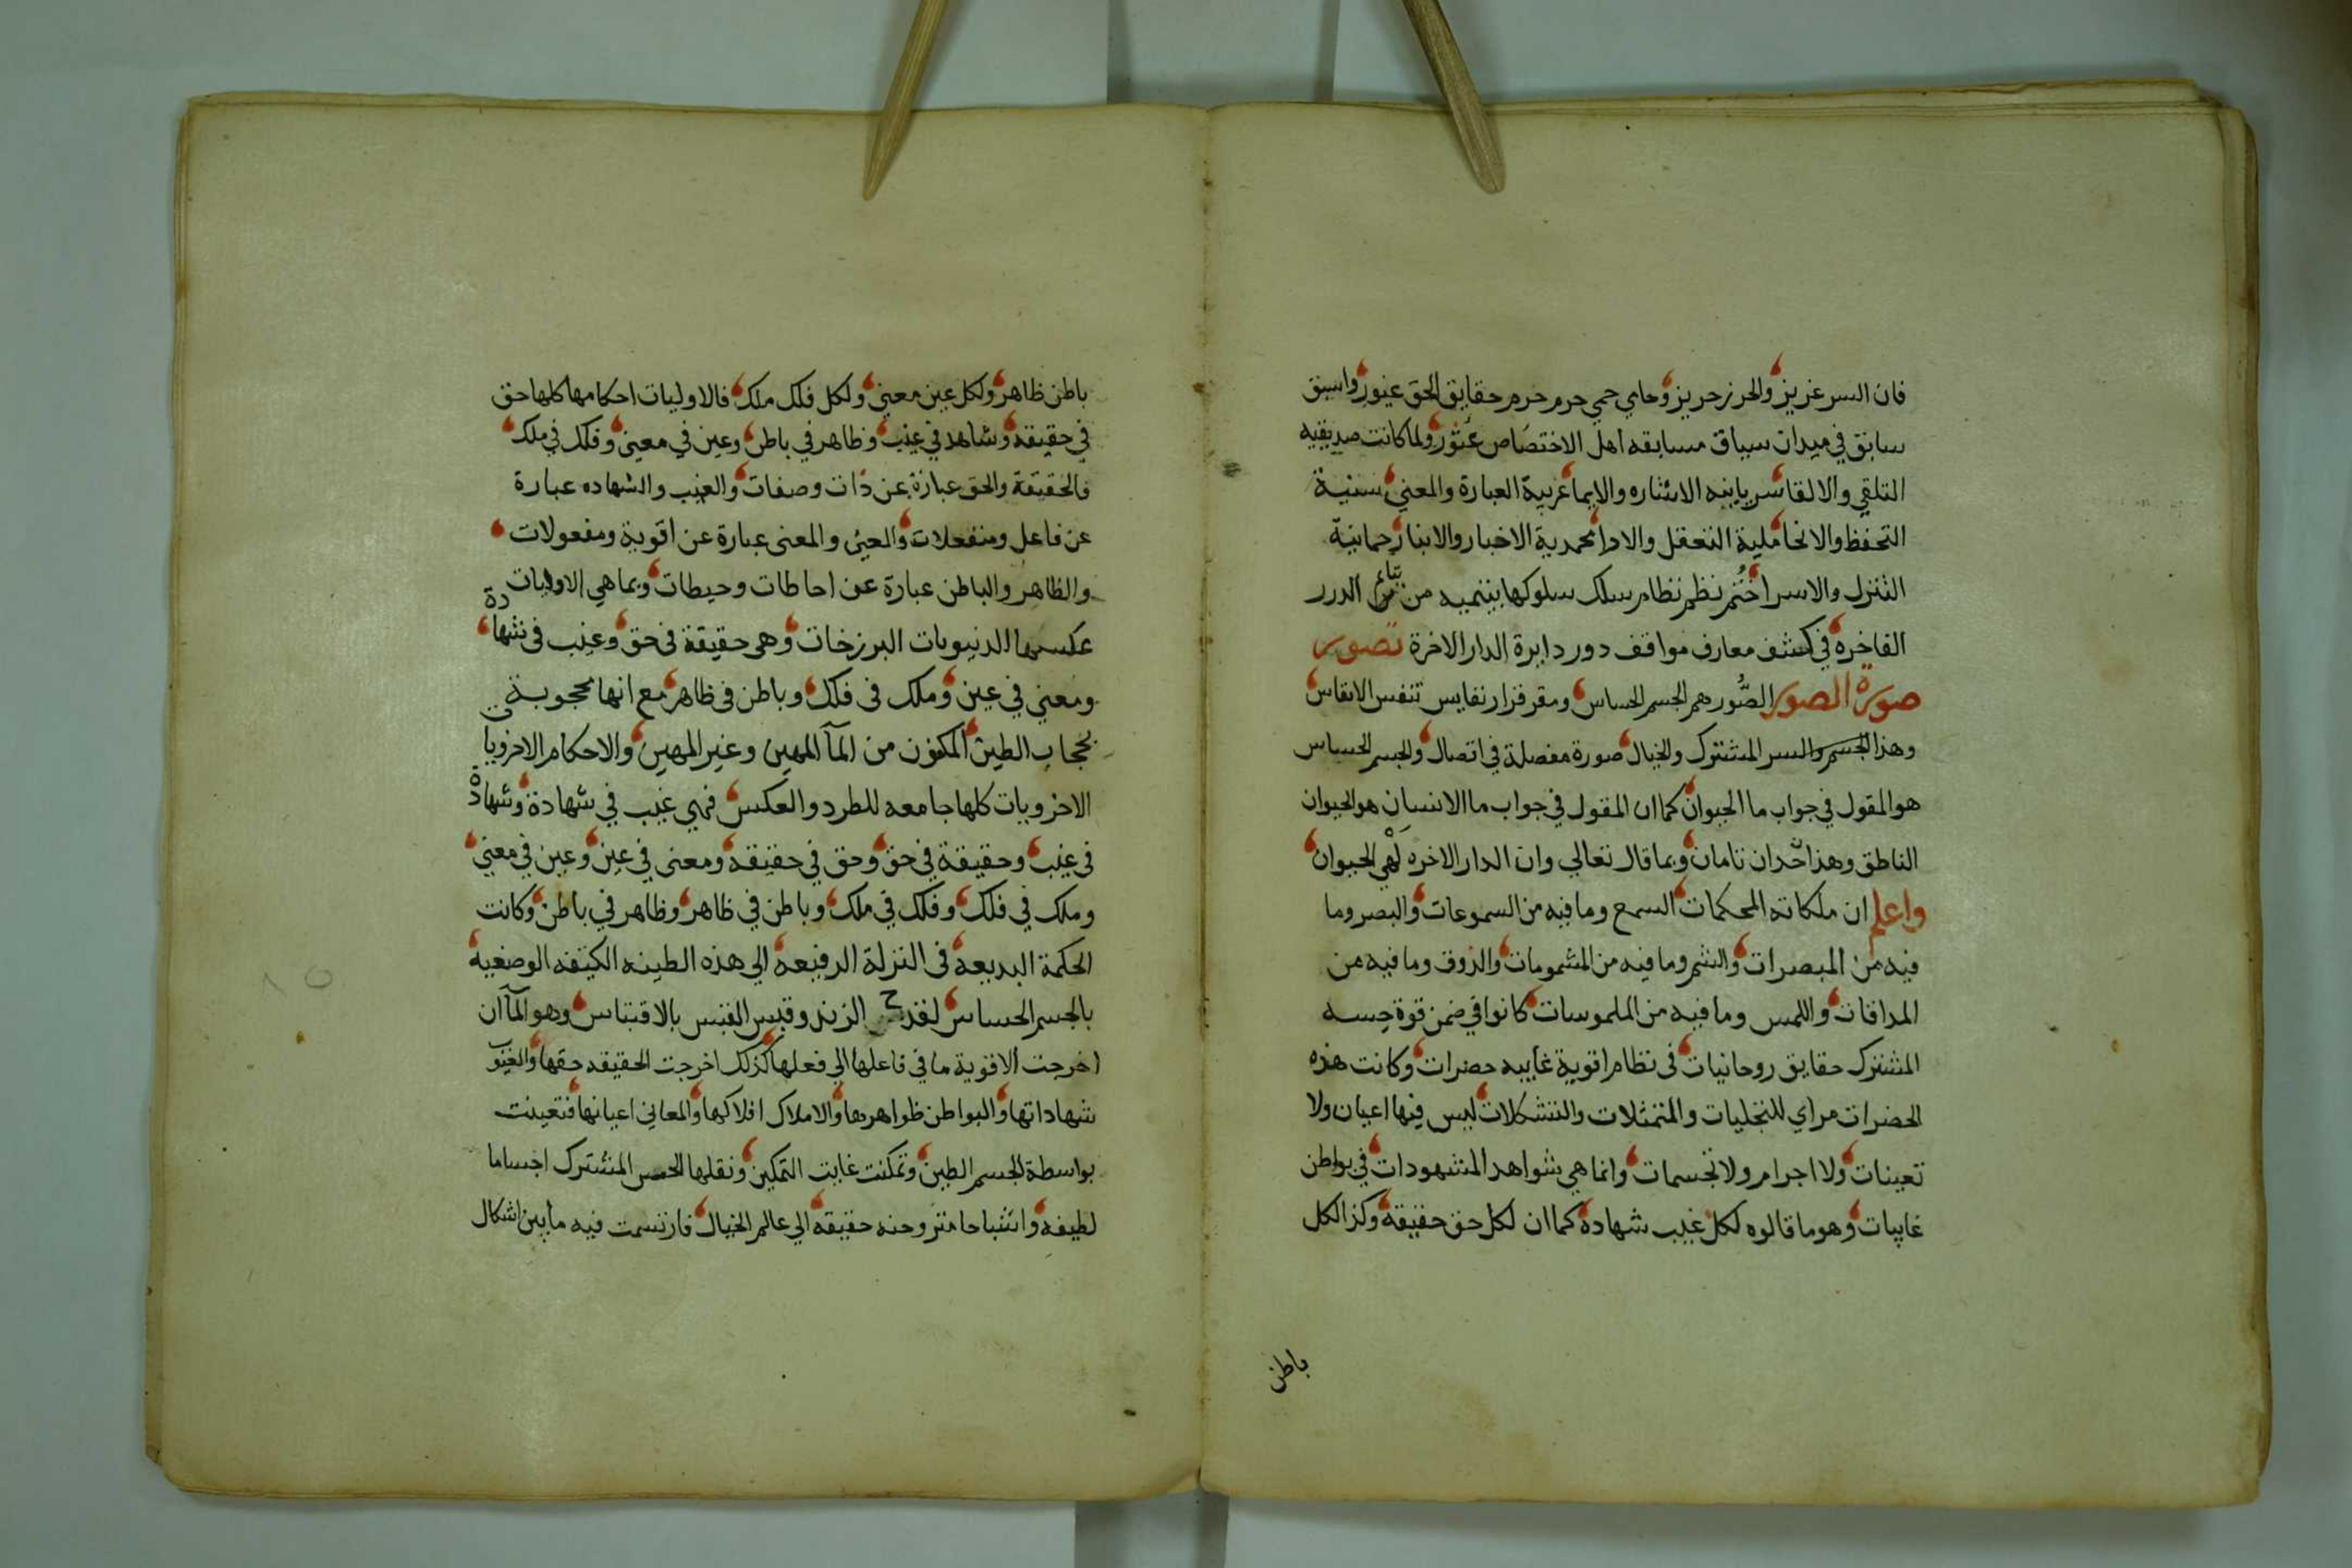 فان السر عزيز والحرز حريز وحامي حمي حرم حرم حقايق الحق غيور واسبق
سابق في ميدان سباق مسابقه اهل الاختصاص عثور ولما كانت صديقيه
التلقي والالقا سريانيه الاشاره والايما غريبة العبارة والمعني سنية
التحفظ والانحا ملية التعقل والادا محمدية الاخبار والانبا رحمانية
التنزل والاسرا ختم نظم نظام سلك سلوكها بيتميه من الدرر
الفاخره في كشف معارف مواقف دور دايرة الدار الاخرة تصوير
صورة الصور الصور هم الجسم الحساس ومقر قرار نفايس تنفس الانفاس
وهذا الجسم والسر المشترك والخيال صورة مفصلة في اتصال والجسم الحساس
هو المقول في جواب ما الحيوان كما ان المقول في جواب ما الانسان هو الحيوان
الناطق وهذا حدان تامان وبما قال تعالي وان الدار الاخره لهي الحيوان
واعلم ان ملكاته المحكمات السمع وما فيه من السموعات والبصر وما
فيه من المبصرات والشم وما فيه من المشمومات والذوق وما فيه من
المداقات واللمس وما فيه من الملموسات كانوا في ضمن قوة حسه
المشترك حقايق روحانيات في نظام اقوية غاييه حضرات وكانت هذه
الحضرات مراي للتجليات والمتمثلات والتشكلات ليس فيها اعيان ولا
تعينات ولا اجرام ولا تجسمات وانما هي شواهد المشهودات في بواطن
غايبات وهو ما قالوه لكل غيب شهادة كما ان لكل حق حقيقة وكذا لكل
باطن
باطن ظاهر ولكل عين معني ولكل فلك ملك فالاوليات احكامها كلها حق
في حقيقه وشاهد في غيب وظاهر في باطن وعين في معني وفلك في ملك
فالحقيقة والحق عبارة عن ذات وصفات والغيب والشهاده عبارة
عن فاعل ومنفعلات والعين والمعنى عبارة عن اقوية ومفعولات
والظاهر والباطن عبارة عن احاطات وحيطات وبما هي الاوليات
عكسها الدنيويات البرزخات وهي حقيقة في حق وغيب في شهادة
ومعني في عين وملك في فلك وباطن في ظاهر مع انها محجوبة
بحجاب الطين المكون من المآ المهين وغير المهين والاحكام الاخرويات
الاخرويات كلها جامعه للطرد والعكس فهي غيب في شهادة وشهادة
في غيب وحقيقة في حق وحق في حقيقه ومعنى في عين وعين في معني
وملك في فلك وفلك في ملك وباطن في ظاهر وظاهر في باطن وكانت
الحكمة البديعه في النزلة الرفيعه الي هذه الطينه الكثيفه الوضعيه
بالجسم الحساس لقدح الزند وقبس القبس بالاقتباس وهو المآ ان
اخرجت الاقوية ما في فاعلها الي فعلها كذلك اخرجت الحقيقه حقها والغيوب
شهاداتها والبواطن ظواهرها والاملاك افلاكها والمعاني اعيانها فتعينت
بواسطة الجسم الطين وتمكنت غايت التمكين ونقلها الحس المشترك اجساما
لطيفه واشباحا متروحنه حقيقه الي عالم الخيال فارتسمت فيه ما بين اشكال